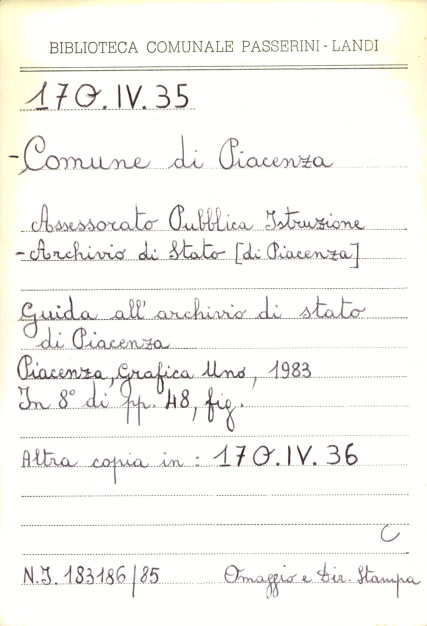 BIBLIOTECA COMUNALE PASSERINI - LANDI
170.IV.35
- Comune di Piacenza
Assessorato Pubblica Istruzione
- Archivio di Stato [di Piacenza]
Guida all'archivio di stato
di Piacenza
Piacenza, Grafica Uno, 1983
In 8° di pp. 48, fig.
Altra copia in : 170.IV.36
C
N.I. 183186/85 Omaggio e Dir. Stampa